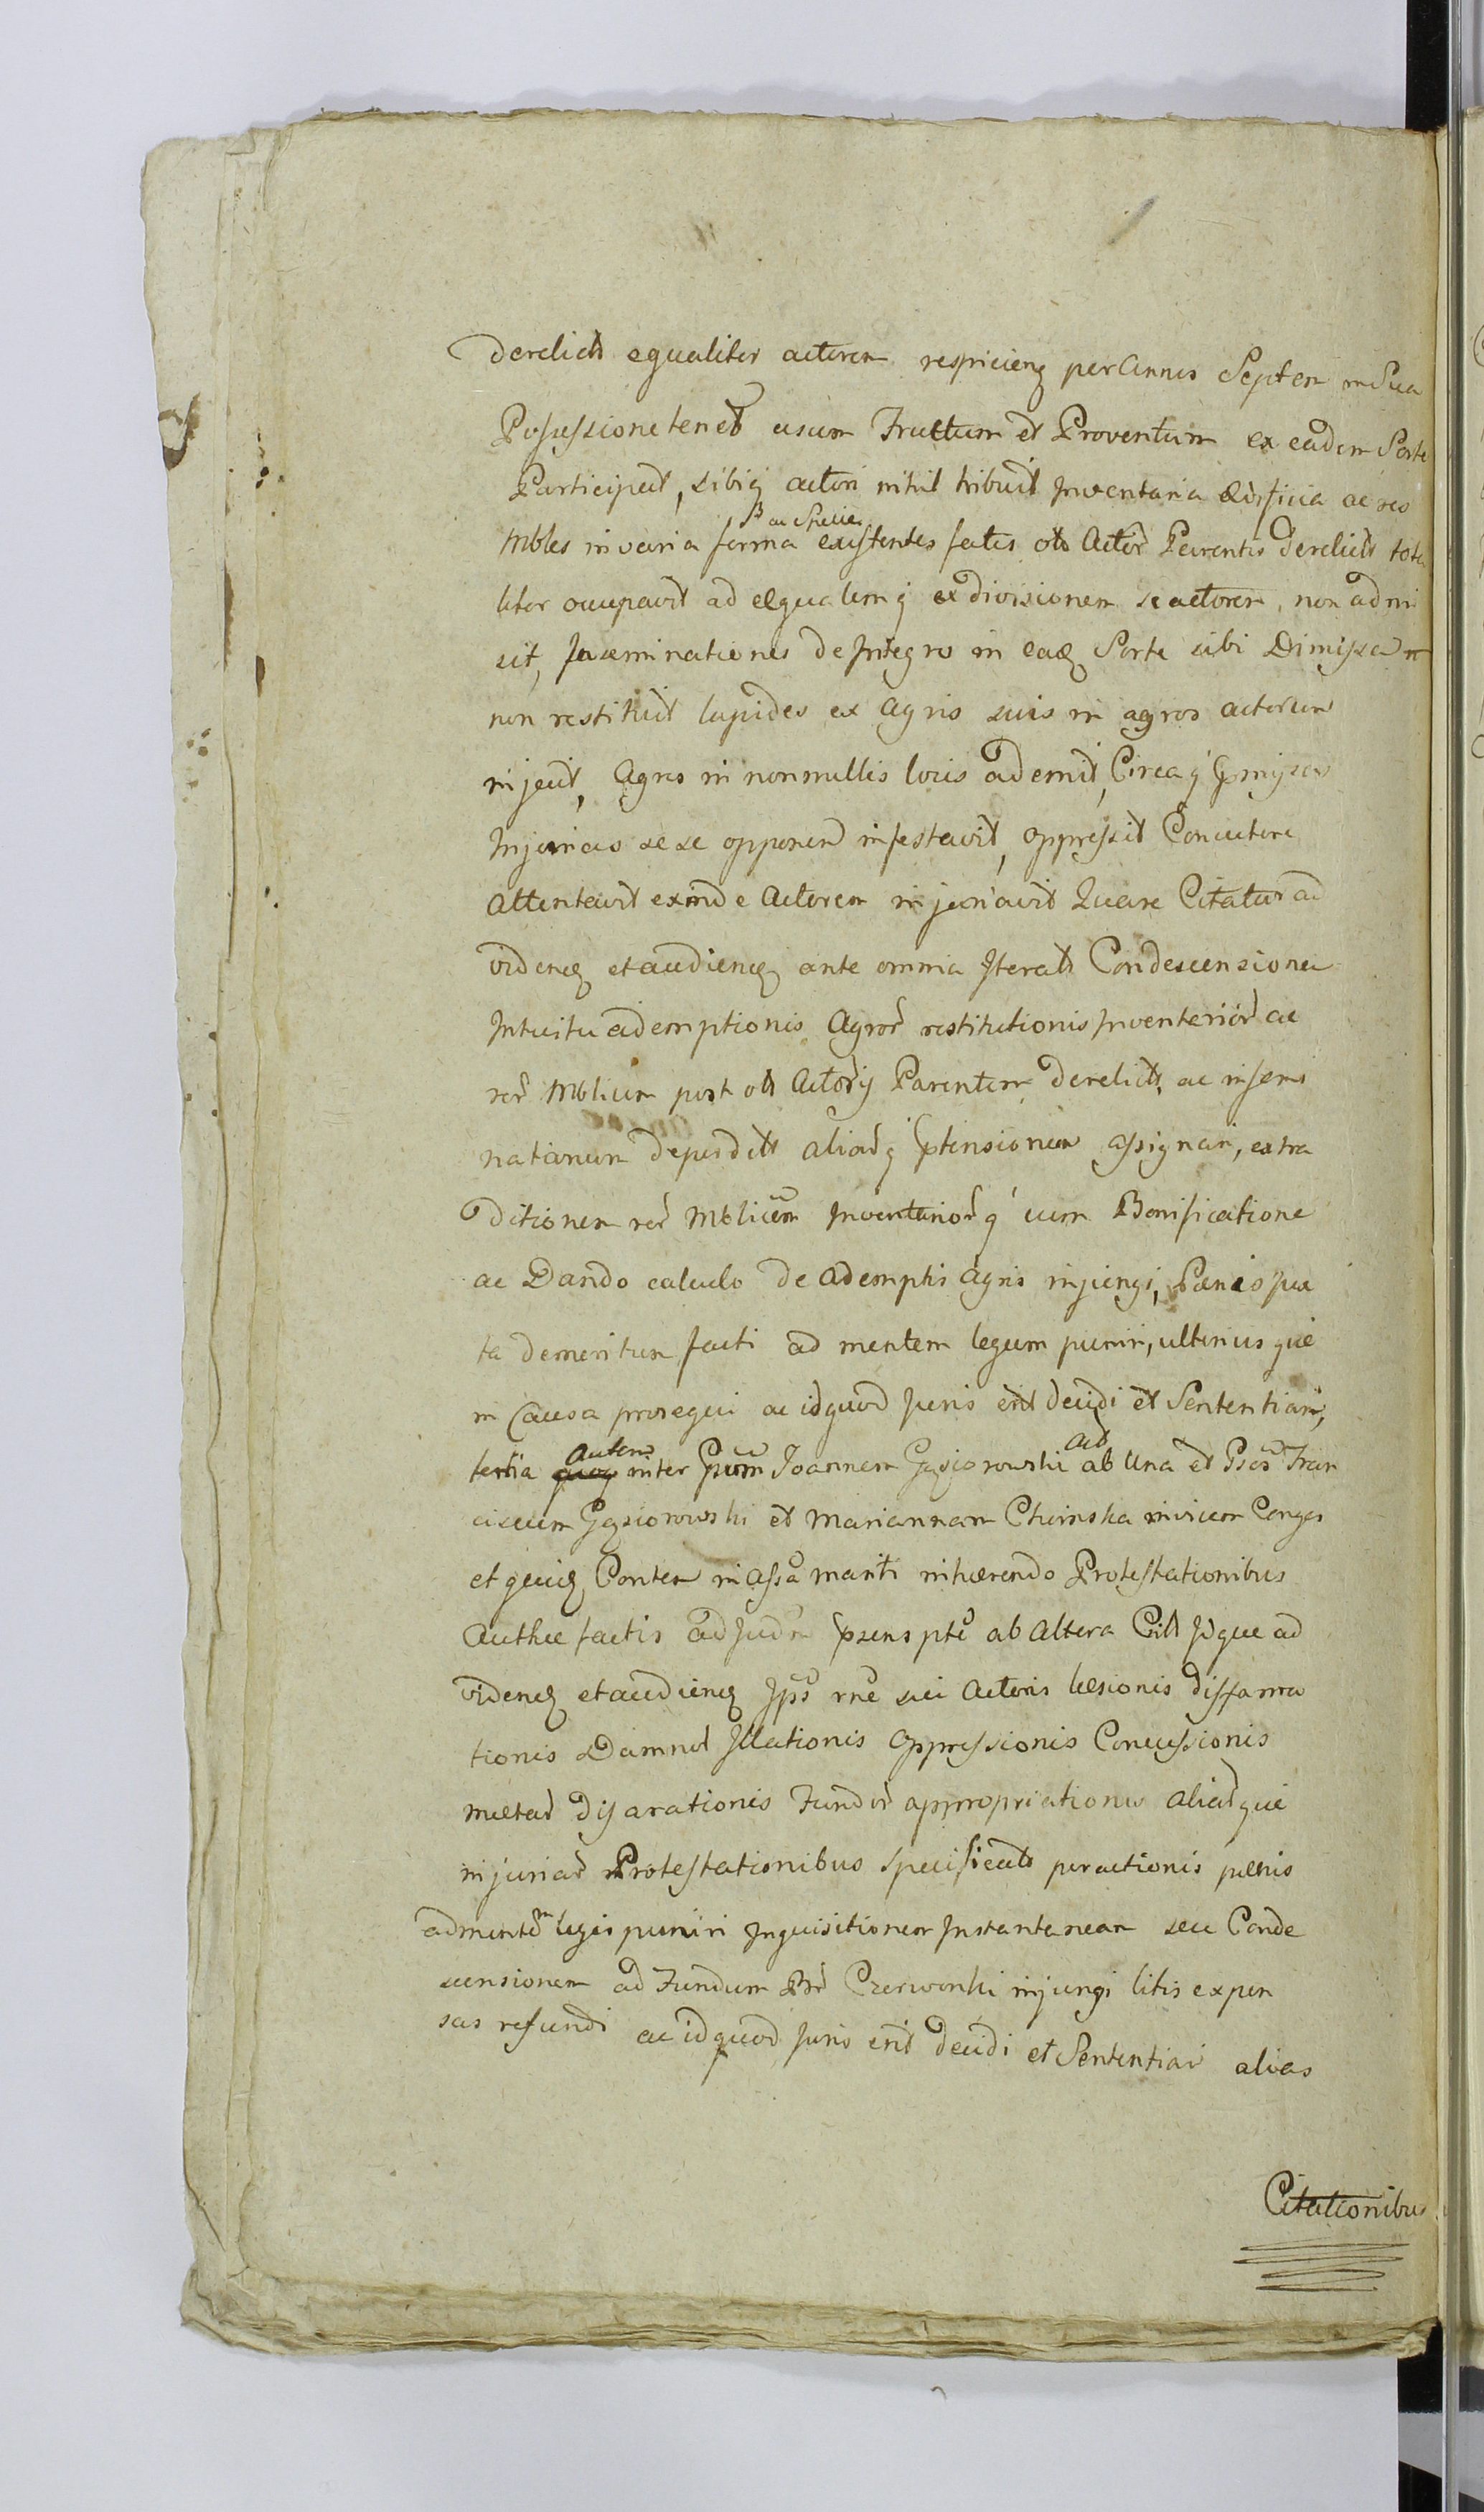 derelicta equaliter actorem respiciens per Annos Septem in Sua
Possessione tenet usum Fructum et Proventum ex eadem Sorte
Participat, sibiq actori nihil tribuit Inventaria Ædificia ac res
Mbles in varia forma ac Specie existentes fatis Actor Parentis derelicta tota
liter occupavit ad æqualemq exdivisionem se actorem, non admi
sit, Inseminationes de Integro in eadem Sorte sibi Dimissam
non restituit lapides ex Agris suis in agros actorum
injecit, Agros in nonnullis locis ademit, Circaq
Injurias sese opponen infestavit, oppressit Concutere
attentavit exinde Actorem injuriavit Quare Citatur ad
videndum et audiendum ante omnia Condescensionem
Intuitu ademptionis Agror restitutionis Inventarior ac
rer Mblium post Actoris Parentem derelict, ac insemi
nationum deperdit aliarq ptensionum assignari, extra
ditionem rer Mblium Inventariorq cum Bonificatione
ac Dando calculo de ademptis agris injungi, Pænis jux
ta demeritum facti ad mentem legum puniri, ulterius que
in Causa prosequi ac id quod Juris erit decidi et Sententiari,
tertia Autem inter Joannem Gąsiorowski Act ab Una et Fran
ciscum Gąsiorowski et Mariannam Chimska invicem Conges
et quidem in mariti inhærendo Protestationibus
factis ad ab Altera que ad
videndum et audiendum rne sui Actoris læsionis diffama
tionis Damnor Illationis Oppressionis Concussionis
metar disarationis Fundor appropriationis aliarque
injuriar Protestationibus specificat peractionis pænis
ad mentem legis puniri Inquisitionem Instantaneam seu Conde
scensionem ad Fundum Bnr Czerwonki injungi litis expen
sas refundi ac id quod Juris erit decidi et Sententiari alias
Citationibus